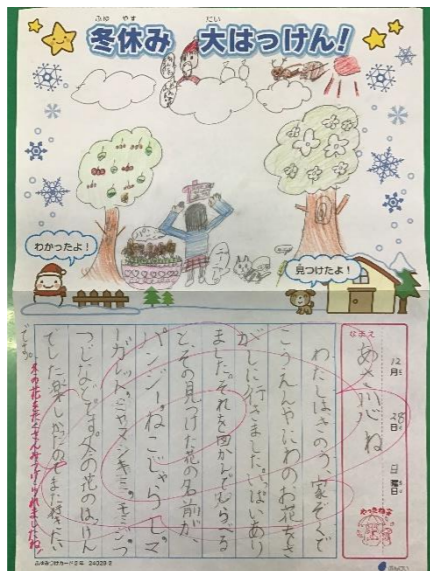 冬休み 大はっけん!
わかったよ!
見つけたよ!
なまえ
12月28日 日曜日
やったね
わたしはきのう、家ぞくで
こうえんやにわのお花をさ
がしに行きました。いっぱいあり
ました。それを図かんでしらべる
と、その見つけた花の名前が
パンジー、ねこじゃらし、マ
ーガレット、ミヤマシキミ、
つじなどです。冬の花のはっけん
でした。楽しかったのでまた行きたい
です。
冬の花をたくさんみつけられましたね